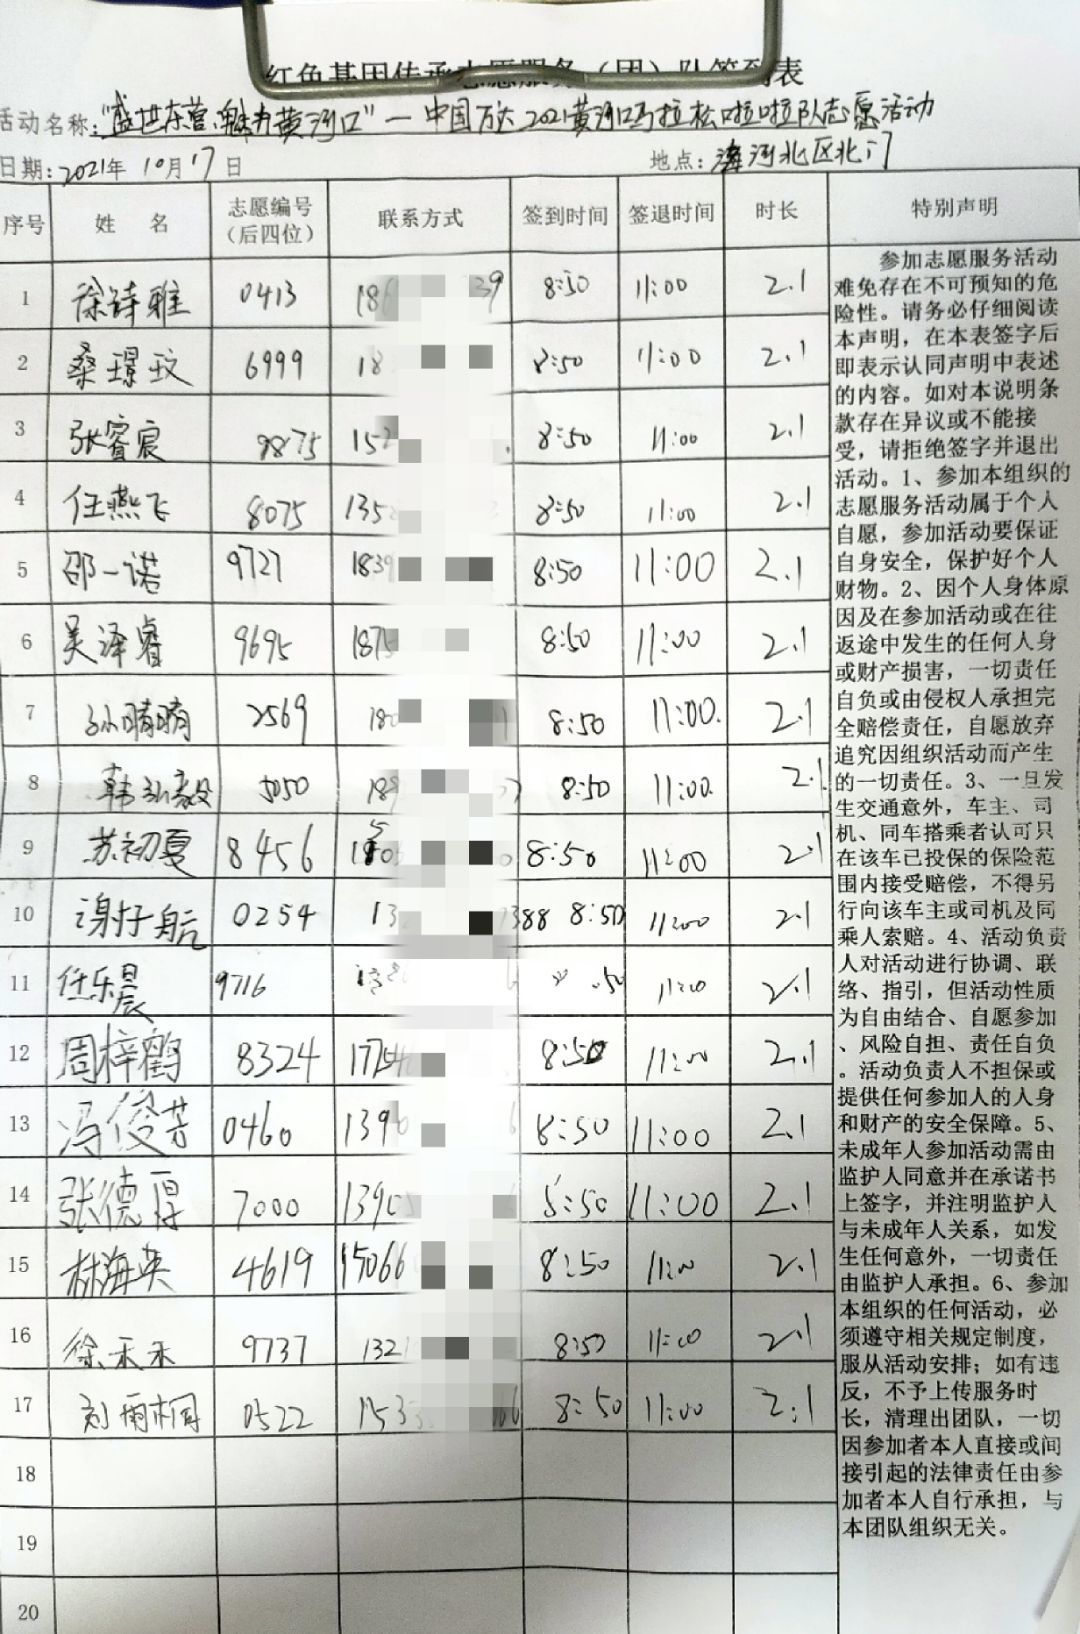 红色基因传承志愿服务（团）队签到表
活动名称："盛世东营,魅力黄河口"—中国万达2021黄河口马拉松啦啦队志愿活动
日期:2021年10月17日 地点:河北区北门
序号 姓 名 志愿编号（后四位） 联系方式 签到时间 签退时间 时长 特别声明
1 徐诗雅 0413 18 39 8:50 11:00 2.1
2 桑璟玟 6999 18 8:50 11:00 2.1
3 张睿宸 9875 152 8:50 11:00 2.1
4 任燕飞 8075 135 8:50 11:00 2.1
5 邵一诺 9727 1839 8:50 11:00 2.1
6 吴泽睿 9695 187 8:50 11:00 2.1
7 孙晴晴 2569 180 8:50 11:00. 2.1
8 韩弘毅 5050 18 8:50 11:00. 2.1
9 苏初夏 8456 8:50 11:00 2.1
10 谢行航 0254 13 388 8:50 11:00 2.1
11 任乐晨 9716 .50 11:00 2.1
12 周梓鹤 8324 1775 8:50 11:00 2.1
13 冯俊芳 0460 139 8:50 11:00 2.1
14 张德厚 7000 139 8:50 11:00 2.1
15 林海英 4619 15066 8:50 11:00 2.1
16 徐禾禾 9737 132 8:50 11:00 2.1
17 刘雨桐 0522 153 66 8:50 11:00 2.1
18
19
20
参加志愿服务活动
难免存在不可预知的危
险性。请务必仔细阅读
本声明，在本表签字后
即表示认同声明中表述
的内容。如对本说明条
款存在异议或不能接
受，请拒绝签字并退出
活动。1、参加本组织的
志愿服务活动属于个人
自愿，参加活动要保证
自身安全，保护好个人
财物。2、因个人身体原
因及在参加活动或在往
返途中发生的任何人身
或财产损害，一切责任
自负或由侵权人承担完
全赔偿责任，自愿放弃
追究因组织活动而产生
的一切责任。3、一旦发
生交通意外，车主、司
机、同车搭乘者认可只
在该车已投保的保险范
围内接受赔偿，不得另
行向该车主或司机及同
乘人索赔。4、活动负责
人对活动进行协调、联
络、指引，但活动性质
为自由结合、自愿参加
、风险自担、责任自负
。活动负责人不担保或
提供任何参加人的人身
和财产的安全保障。5、
未成年人参加活动需由
监护人同意并在承诺书
上签字，并注明监护人
与未成年人关系，如发
生任何意外，一切责任
由监护人承担。6、参加
本组织的任何活动，必
须遵守相关规定制度，
服从活动安排；如有违
反，不予上传服务时
长，清理出团队，一切
因参加者本人直接或间
接引起的法律责任由参
加者本人自行承担，与
本团队组织无关。